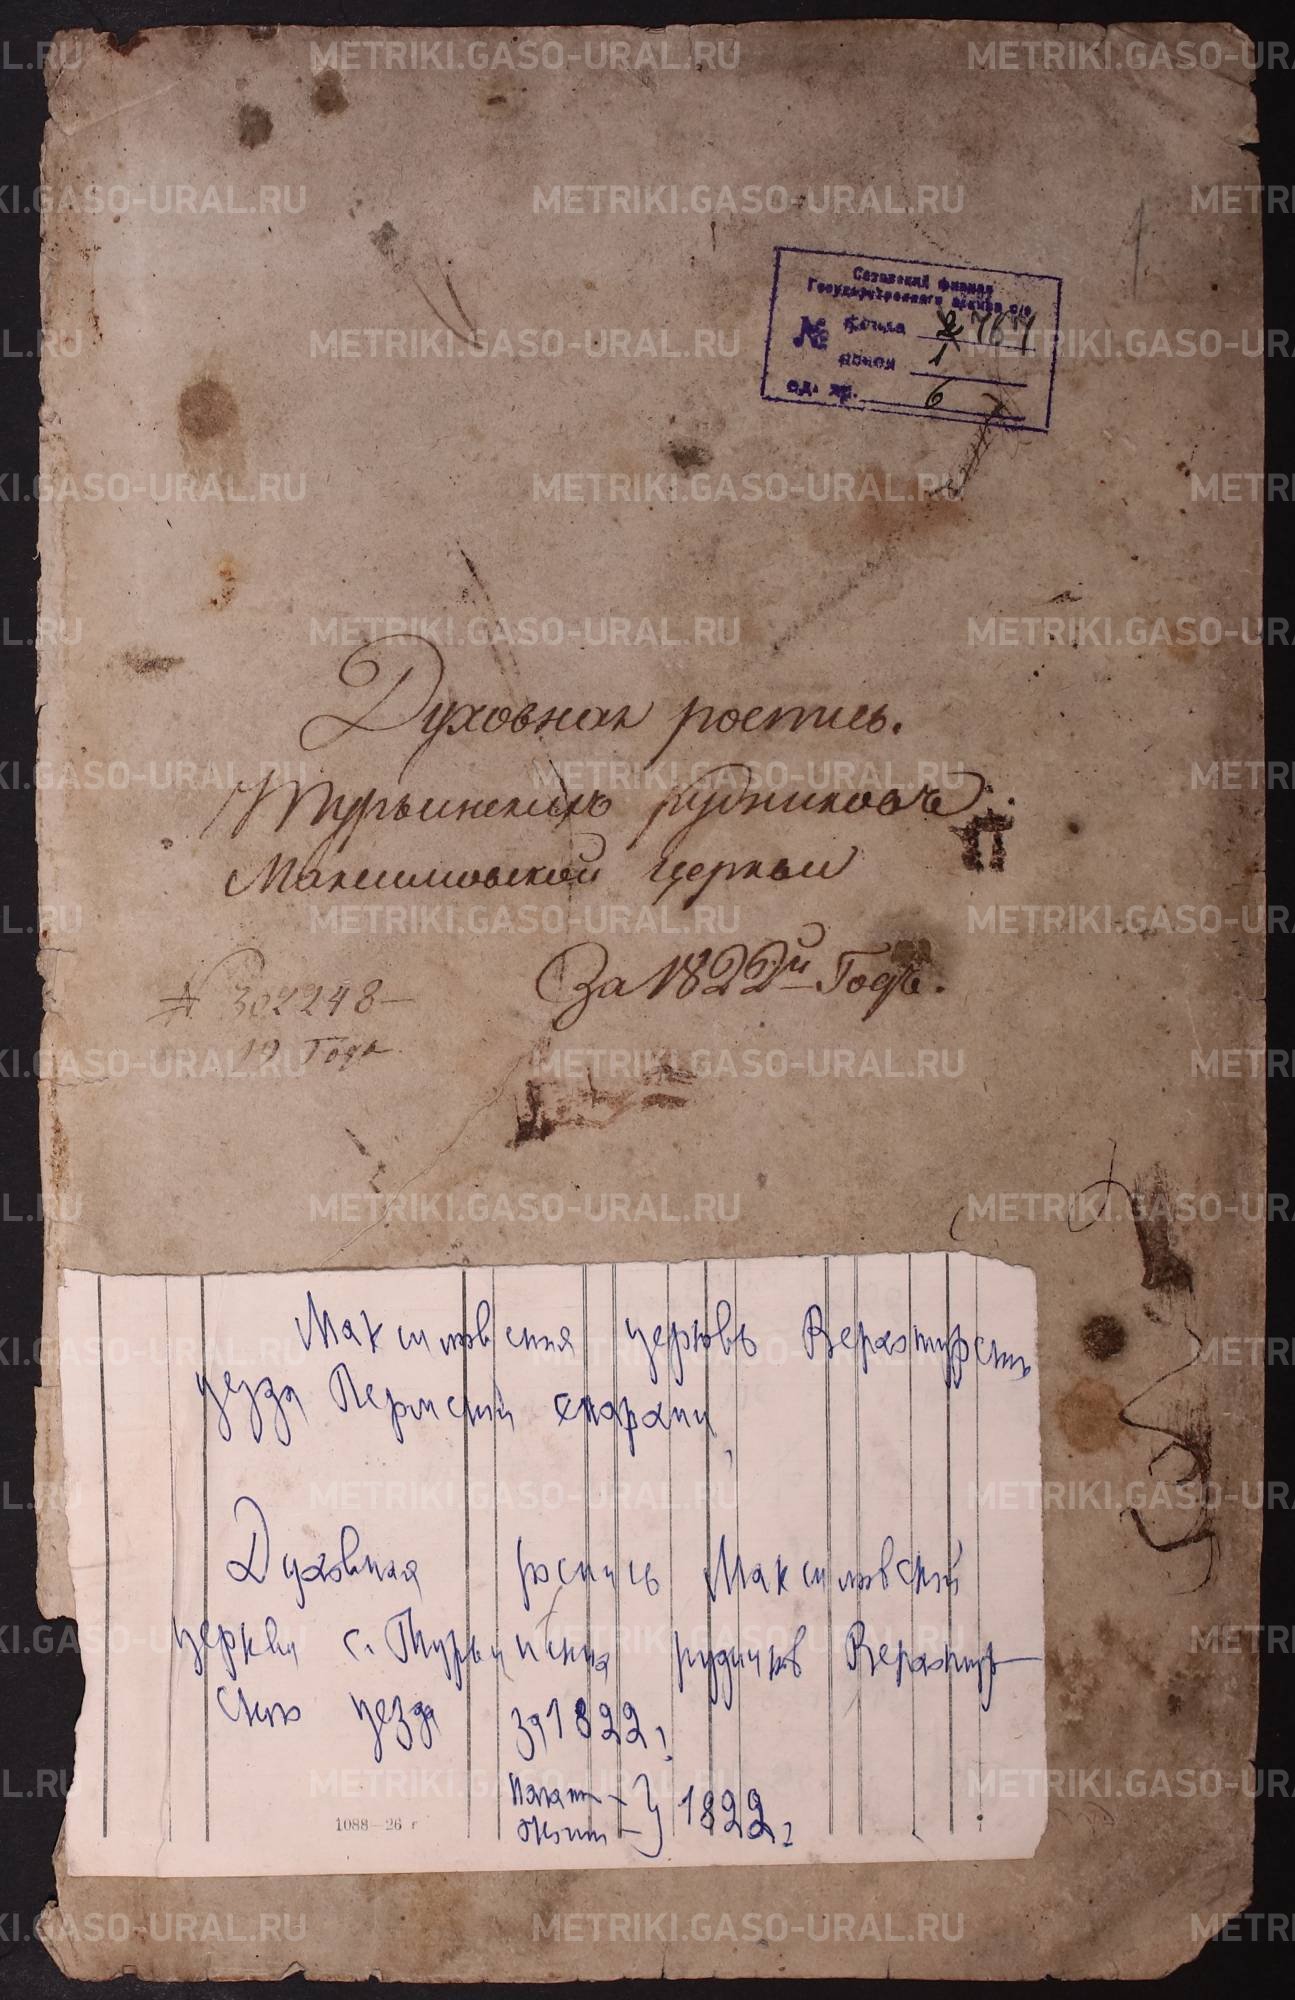 1
Сетовский филиал
Государственного архива с/о
№ фонда 2 764
описи 1
ед. хр. 6
Духовная роспись.
Турьинскихъ рудниковъ
Максимовской церкви
За 1822й Годъ.
№ 302248
19 Года
Максимовская церковь Верхотурского
уезда Пермской епархии
Духовная роспись Максимовской
церкви с. Турьинских рудников Верхотур-
ского уезда за 1822 г.
Начат -
Окончен - } 1822 г.
1088—26 г
METRIKI.GASO-URAL.RU